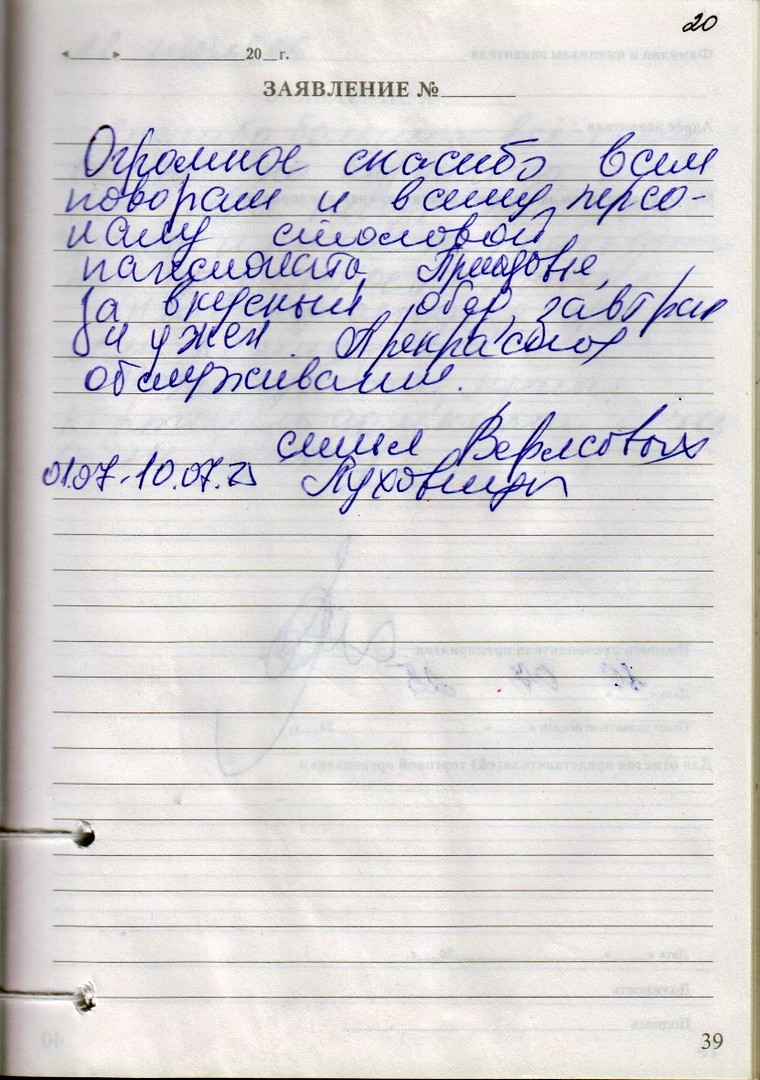 20
«____»______________20__г.
ЗАЯВЛЕНИЕ №______
Огромное спасибо всем
поворам и всему персо-
налу столовой
пансионата Приодовье,
за вкусный обед, завтрак
и ужен. Прекрасное
обслуживание.
семья
01.07-10.07.25 Луховицы
39